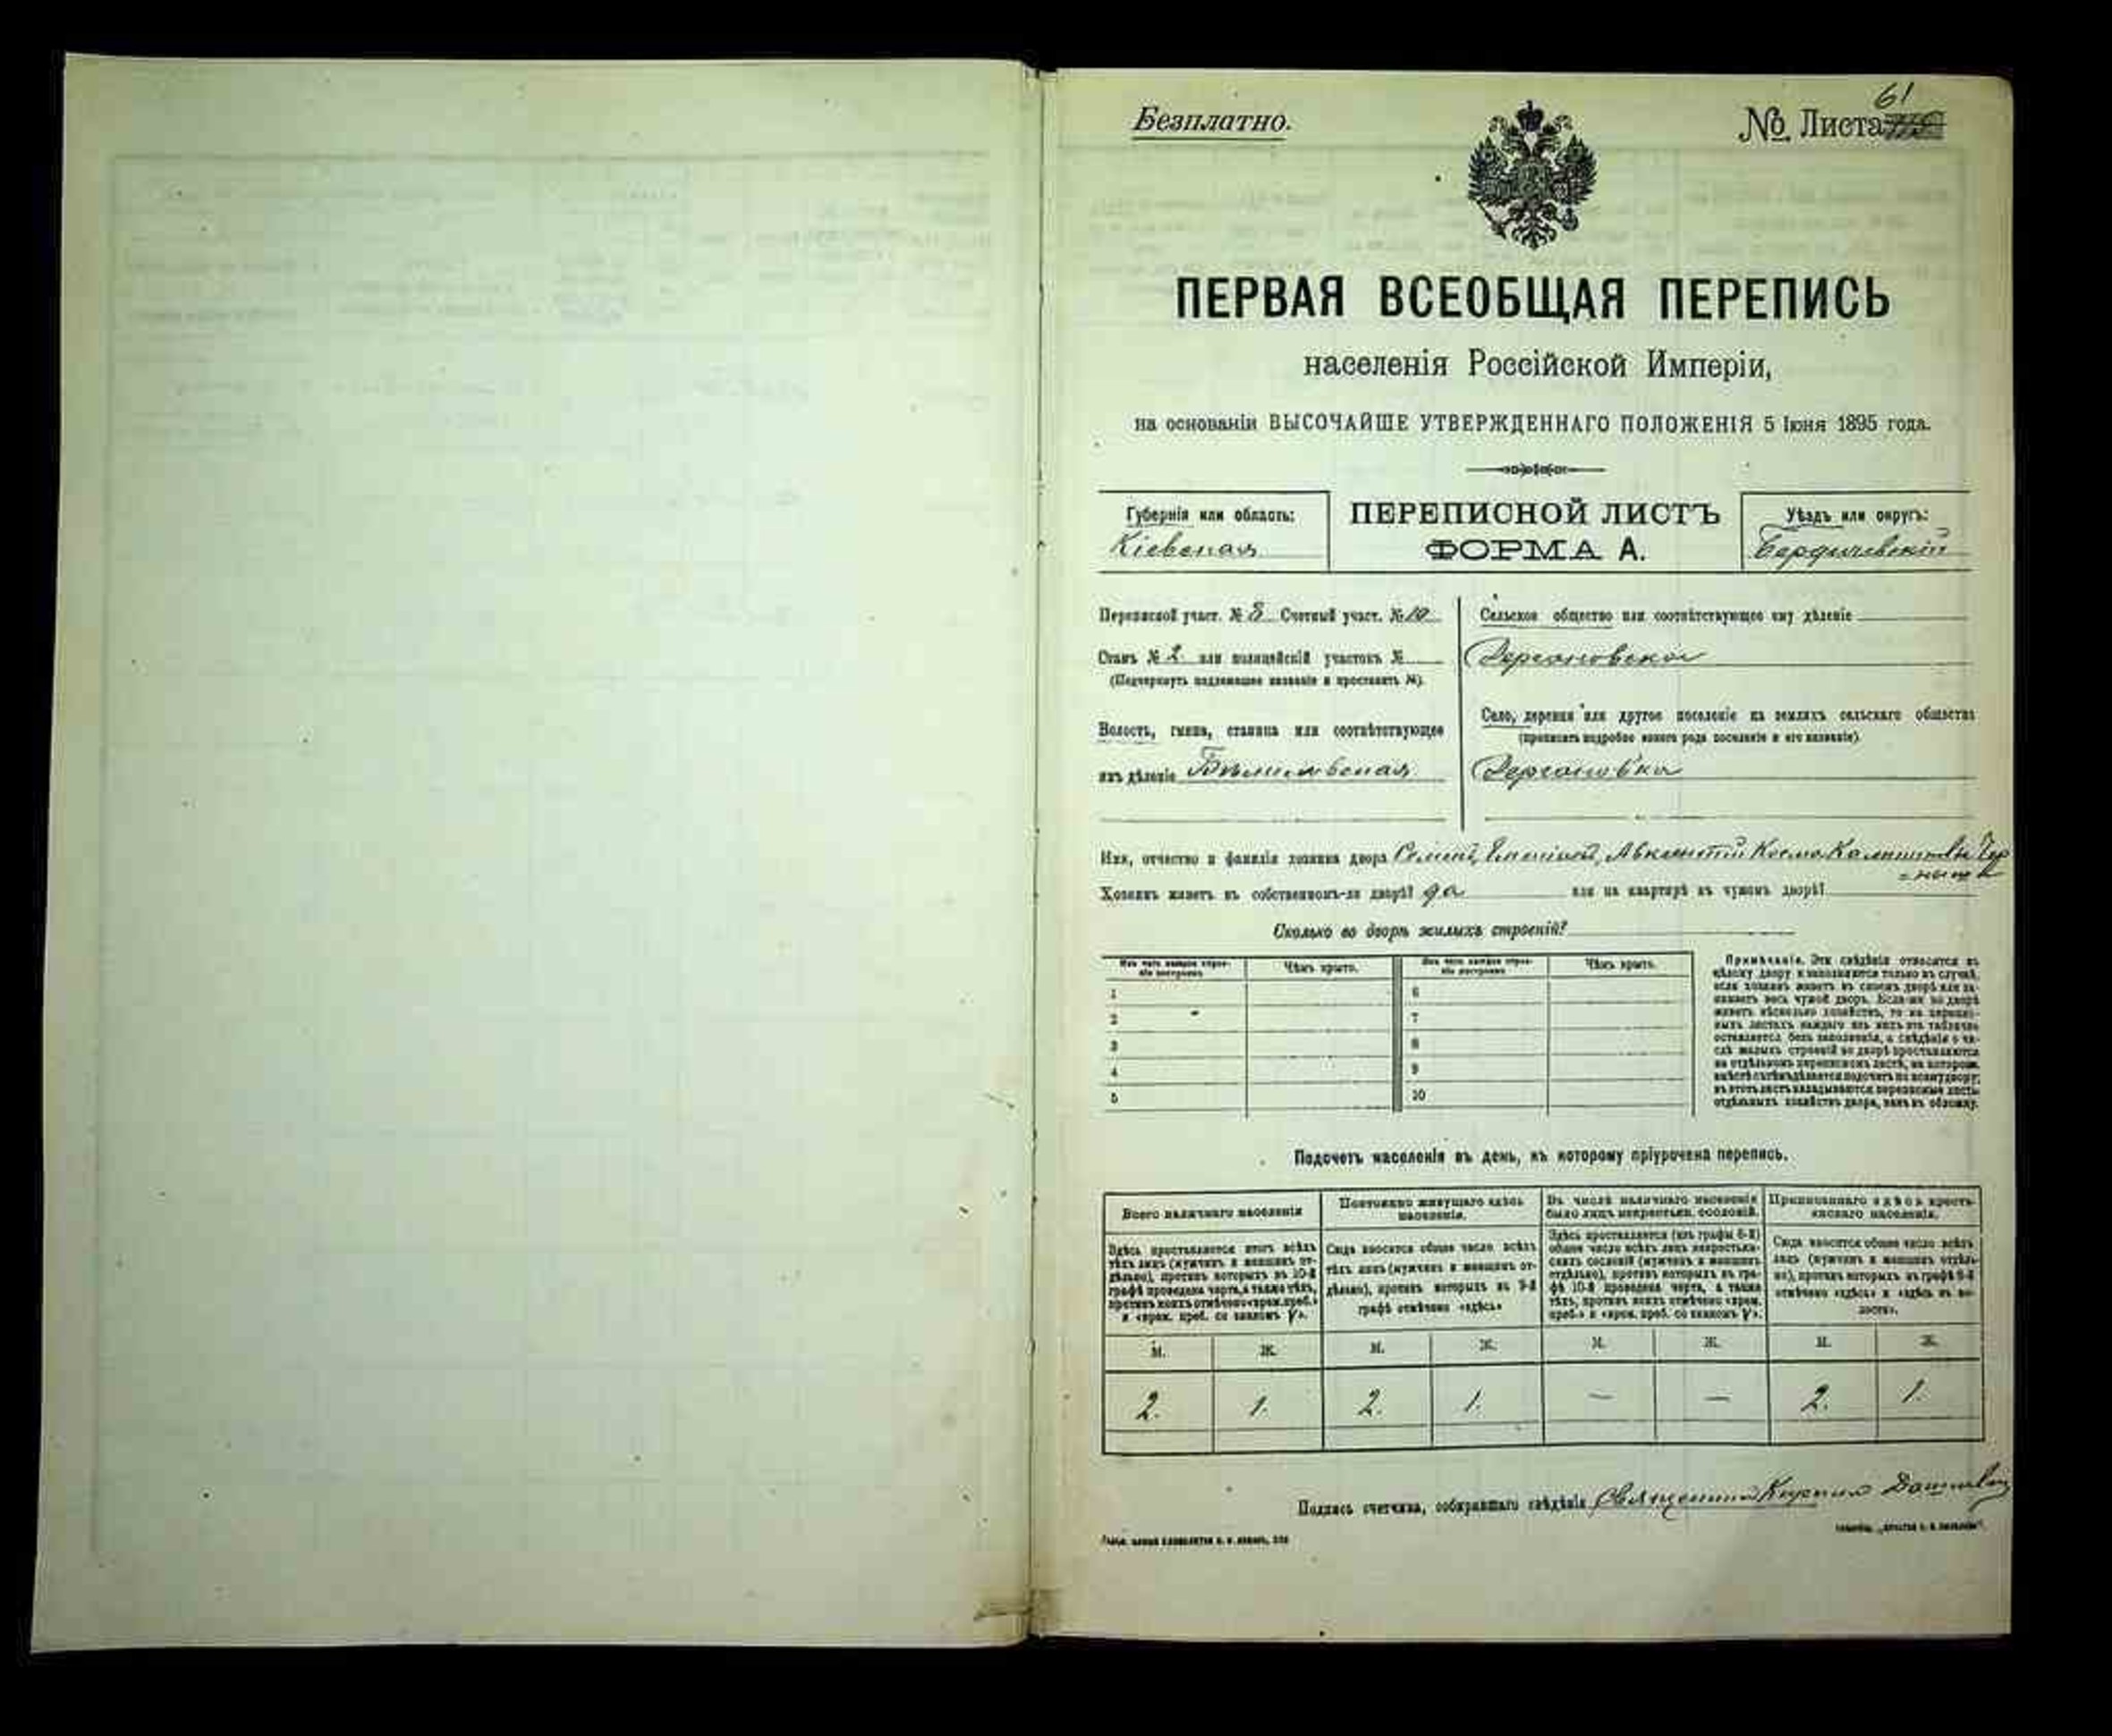 61
Безплатно.
№ Листа
ПЕРВАЯ ВСЕОБЩАЯ ПЕРЕПИСЬ
населенія Россійской Имперіи,
на основаніи ВЫСОЧАЙШЕ УТВЕРЖДЕННАГО ПОЛОЖЕНІЯ 5 Іюня 1895 года.
Губернія или область:
Кіевская
ПЕРЕПИСНОЙ ЛИСТЪ
ФОРМА А.
Уѣздъ или округъ:
Бердичевскій
Переписной участ. № 8 Счетный участ. № 10
Станъ № 2 или полицейскій участокъ №
(Подчеркнуть надлежащее названіе и проставить №).
Волость, гмина, станица или соотвѣтствующее
имъ дѣленіе Бѣлиловская
Сельское общество или соотвѣтствующее ему дѣленіе
Село, деревня или другое поселеніе на земляхъ сельскаго общества
(прописать подробно какого рода поселеніе и его названіе)
Имя, отчество и фамилія хозяина двора
Хозяинъ живетъ въ собственномъ-ли дворѣ? да или на квартирѣ въ чужомъ дворѣ?
Сколько во дворѣ жилыхъ строеній?
Изъ чего каждое строе-
ніе построено.
Чѣмъ крыто.
Изъ чего каждое строе-
ніе построено.
Чѣмъ крыто.
1 6
2 7
3 8
4 9
5 10
Примѣчаніе. Эти свѣдѣнія относятся къ
цѣлому двору и заполняются только въ случаѣ,
если хозяинъ живетъ въ своемъ дворѣ или за-
нимаетъ весь чужой дворъ. Если-же во дворѣ
живетъ нѣсколько хозяйствъ, то на перепис-
ныхъ листахъ каждаго изъ нихъ эта табличка
оставляется безъ заполненія, а свѣдѣнія о чи-
слѣ жилыхъ строеній во дворѣ проставляются
на отдѣльномъ переписномъ листѣ, на которомъ
вмѣстѣ съ тѣмъ дѣлается подсчетъ по всему двору;
въ этотъ листъ вкладываются переписные листы
отдѣльныхъ хозяйствъ двора, какъ въ обложку.
Подсчетъ населенія въ день, къ которому пріурочена перепись.
Всего наличнаго населенія
Постоянно живущаго здѣсь
населенія.
Въ числѣ наличнаго населенія
было лицъ некрестьян. сословій.
Приписаннаго здѣсь кресть-
янскаго населенія.
Здѣсь проставляется итогъ всѣхъ
тѣхъ лицъ (мужчинъ и женщинъ от-
дѣльно), противъ которыхъ въ 10-й
графѣ проведена черта, а также тѣхъ,
противъ коихъ отмѣчено «врем. преб.»
и «врем. преб. со знакомъ V».
Сюда вносится общее число всѣхъ
тѣхъ лицъ (мужчинъ и женщинъ от-
дѣльно), противъ которыхъ въ 9-й
графѣ отмѣчено «здѣсь»
Здѣсь проставляется (изъ графы 6-й)
общее число всѣхъ лицъ некрестьян-
скихъ сословій (мужчинъ и женщинъ
отдѣльно), противъ которыхъ въ гра-
фѣ 10-й проведена черта, а также
тѣхъ, противъ коихъ отмѣчено «врем.
преб.» и «врем. преб. со знакомъ V».
Сюда вносится общее число всѣхъ
лицъ (мужчинъ и женщинъ отдѣль-
но), противъ которыхъ въ графѣ 8-й
отмѣчено «здѣсь» и «здѣсь въ во-
лости».
М. Ж. М. Ж. М. Ж. М. Ж.
2. 1. 2. 1. — — 2. 1.
Подпись счетчика, собиравшаго свѣдѣнія Священникъ